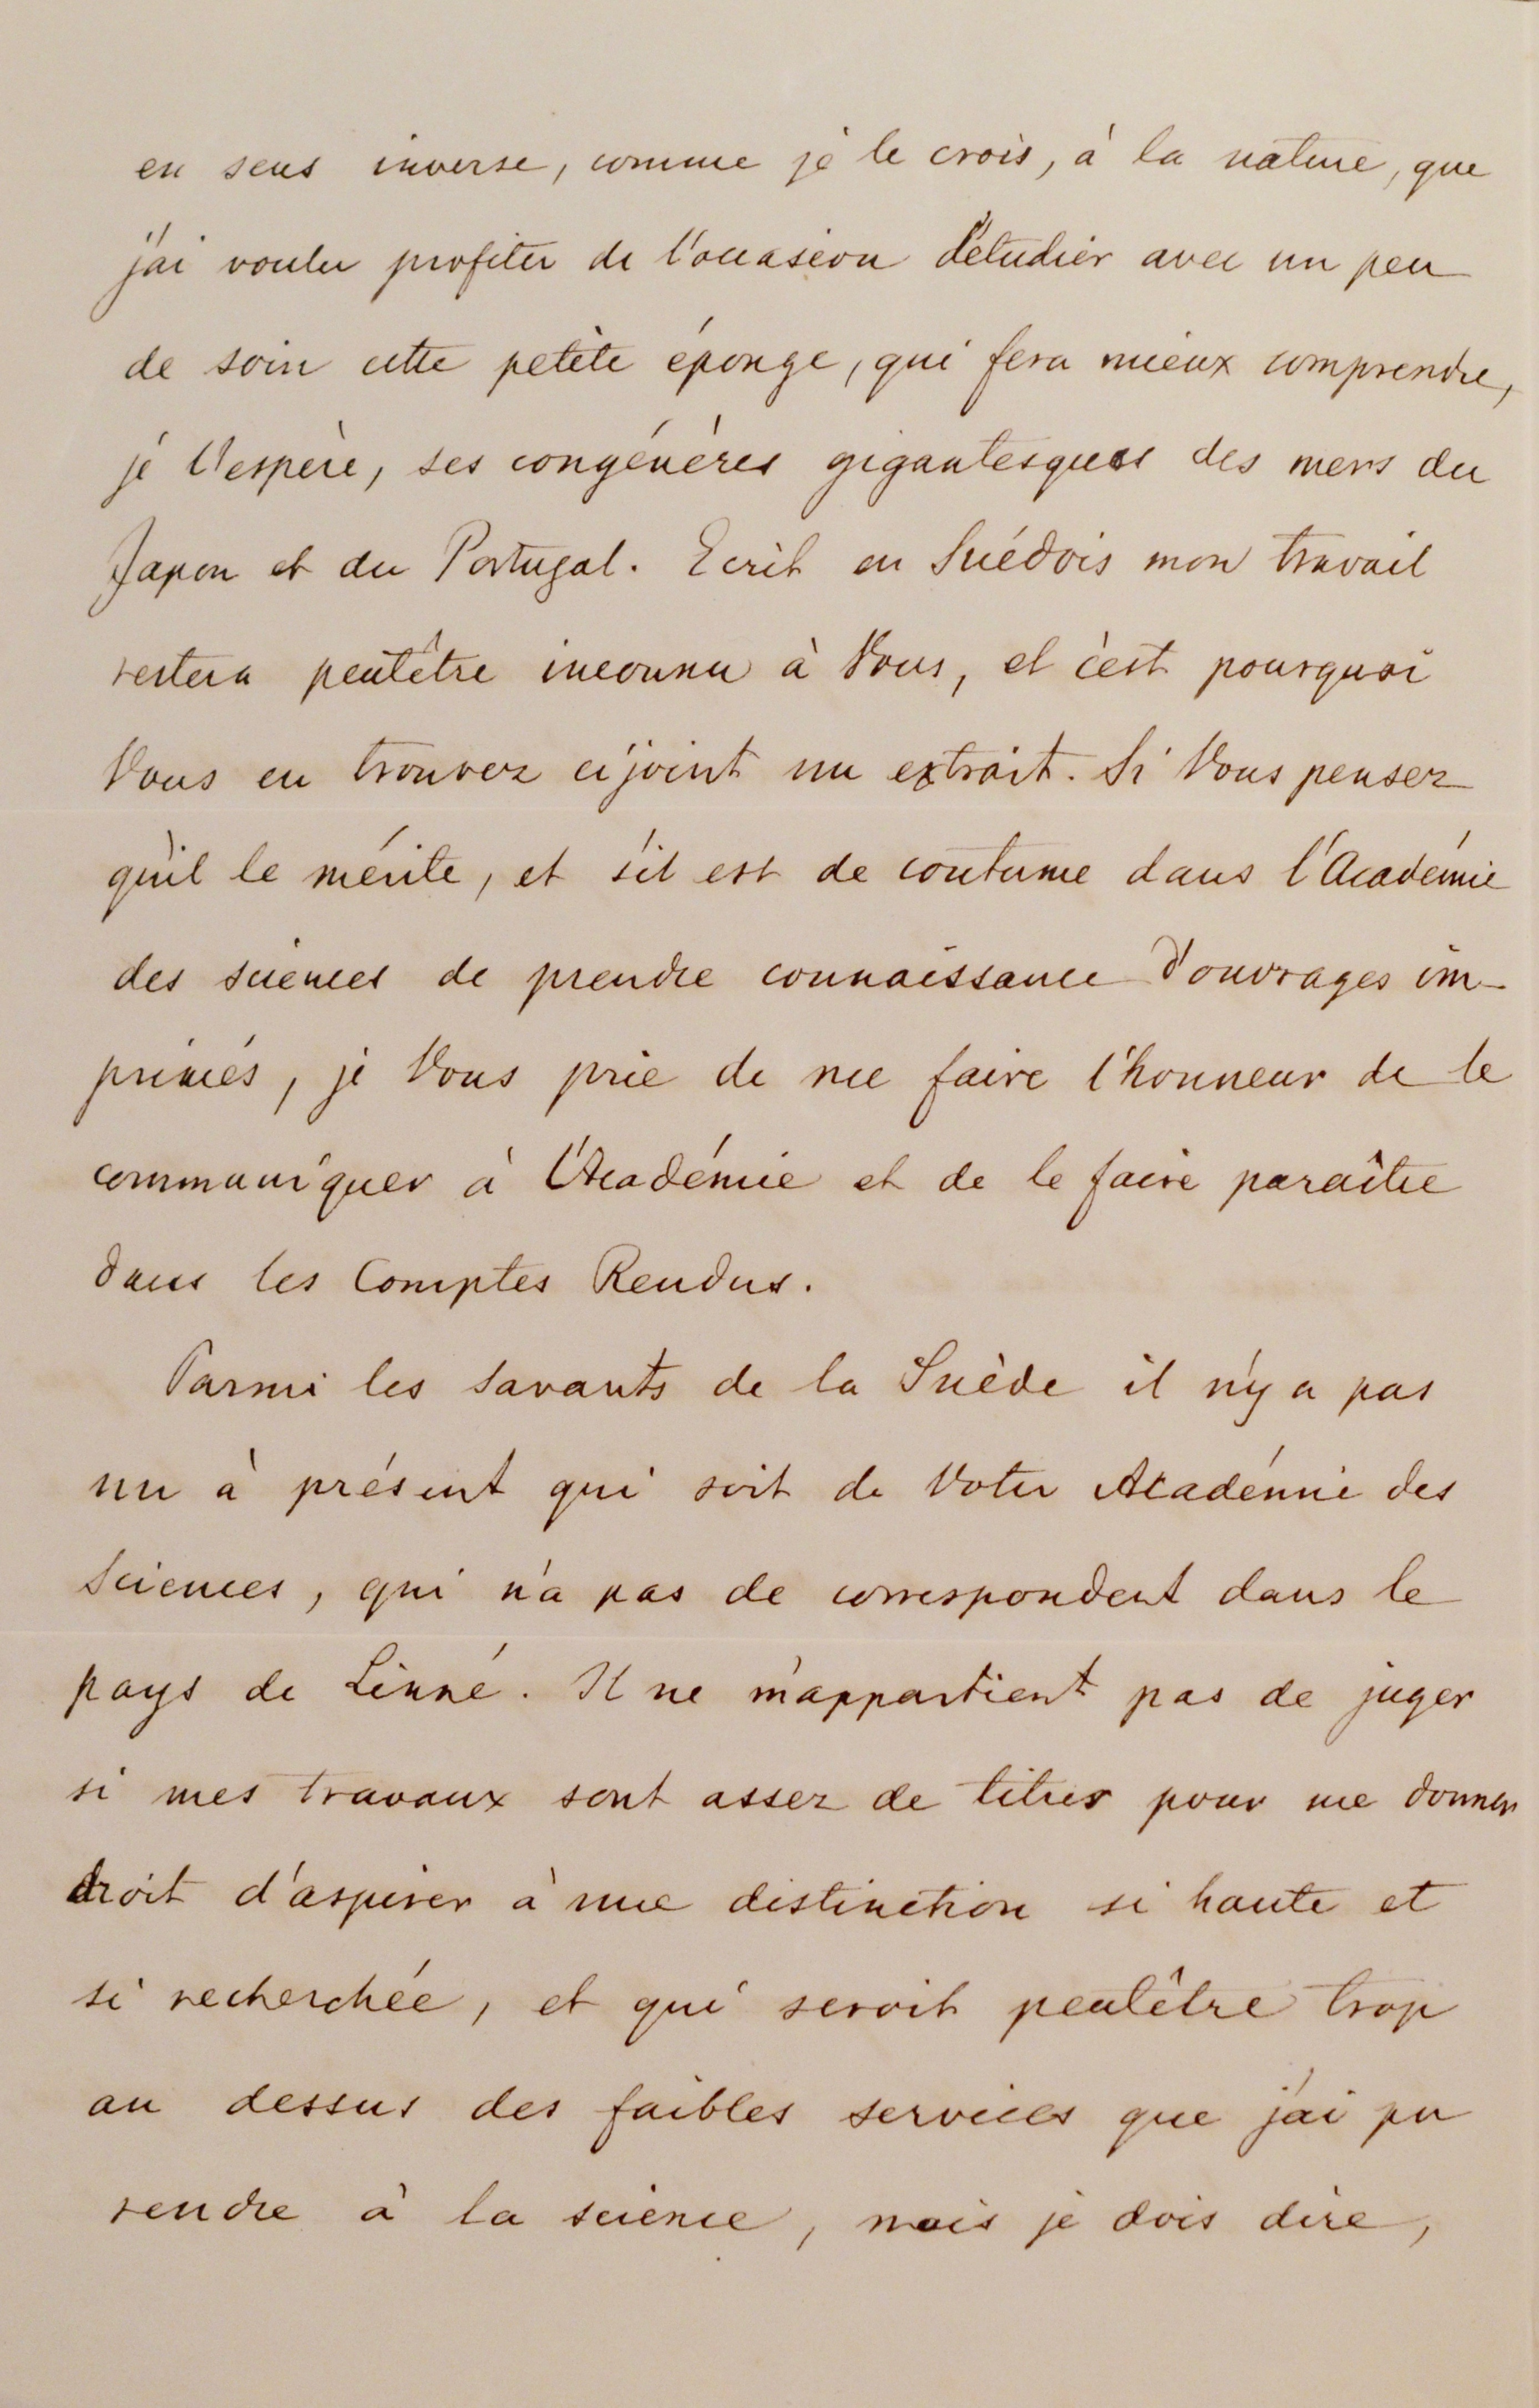 en sens inverse, comme je le crois, à la nature, que
j'ai voulu profiter de l'occasion d'étudier avec un peu
de soin cette petite éponge, qui fera mieux comprendre,
je l'espère, ses congénères gigantesques des mers du
Japon et du Portugal. Ecrit en Suédois mon travail
restera peutêtre inconnu à Vous, et c'est pourquoi
Vous en trouvez cijoint un extrait. Si Vous pensez
qu'il le mérite, et s'il est de coutume dans l'Académie
des sciences de prendre connaissance d'ouvrages im-
primés, je Vous prie de me faire l'honneur de le
communiquer à l'Académie et de le faire paraître
dans les Comptes Rendus.
Parmi les savants de la Suède il n'y a pas
un à présent qui soit de Votre Académie des
Sciences, qui n'a pas de correspondent dans le
pays de Linné. Il ne m'appartient pas de juger
si mes travaux sont assez de titres pour me donner
droit d'aspirer à une distinction si haute et
si recherchée, et qui seroit peutêtre trop
au dessus des faibles services que j'ai pu
rendre à la science, mais je dois dire,